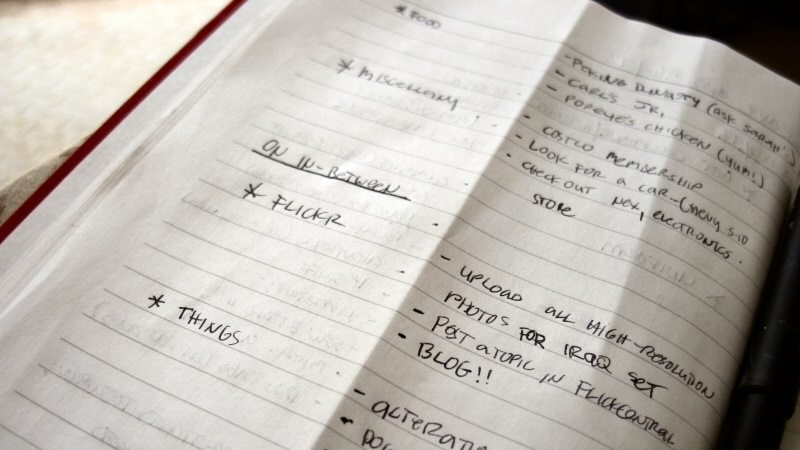 * FOOD
- PEKING DYNASTY (ask SARAH!)
- CARL'S JR.
- POPEYE'S CHICKEN (yum!)
* MISCELLANY
- COSTCO MEMBERSHIP
- LOOK FOR A CAR - CHEVY S-10
- CHECK OUT NEX, ELECTRONICS
STORE
ON IN-BETWEEN
* FLICKR
- UPLOAD ALL HIGH-RESOLUTION
PHOTOS FOR IRAQ SET
- POST A TOPIC IN FLICKCENTRAL
- BLOG!!
* THINGS
- ALTERATI